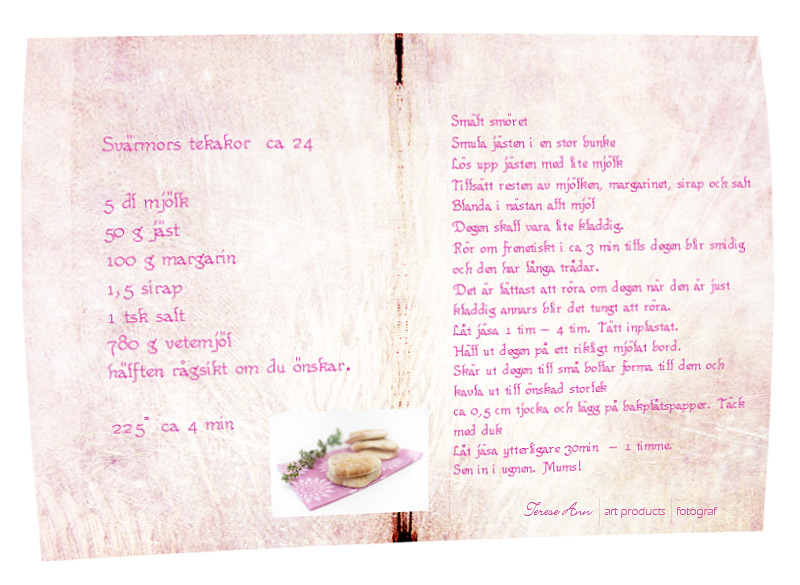 Svärmors tekakor ca 24
5 dl mjölk
50 g jäst
100 g margarin
1,5 sirap
1 tsk salt
780 g vetemjöl
hälften rågsikt om du önskar.
225° ca 4 min
Smält smöret
Smula jästen i en stor bunke
Lös upp jästen med lite mjölk
Tillsätt resten av mjölken, margarinet, sirap och salt
Blanda i nästan allt mjöl
Degen skall vara lite kladdig.
Rör om frenetiskt i ca 3 min tills degen blir smidig
och den har långa trådar.
Det är lättast att röra om degen när den är just
kladdig annars blir det tungt att röra.
Låt jäsa 1 tim – 4 tim. Tätt inplastat.
Häll ut degen på ett rikligt mjölat bord.
Skär ut degen till små bollar forma till dem och
kavla ut till önskad storlek
ca 0,5 cm tjocka och lägg på bakplåtspapper. Täck
med duk
Låt jäsa ytterligare 30min – 1 timme.
Sen in i ugnen. Mums!
Terese Ann | art products | fotograf